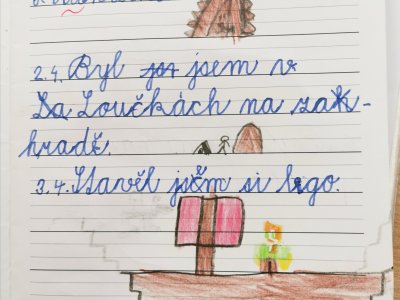 2.4. Byl jsem v
Loučkách na zak-
hradě.
3.4. Stavěl jsem si lego.